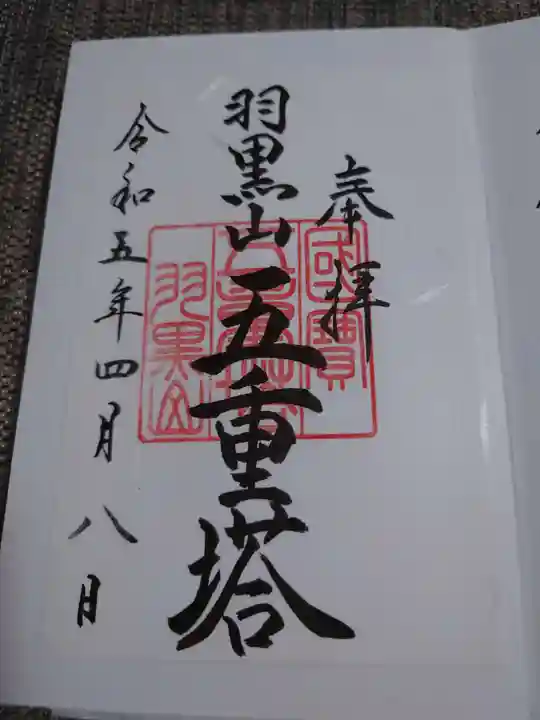 奉拝
羽黒山五重塔
令和五年四月八日
國寶
五重塔
羽黒山